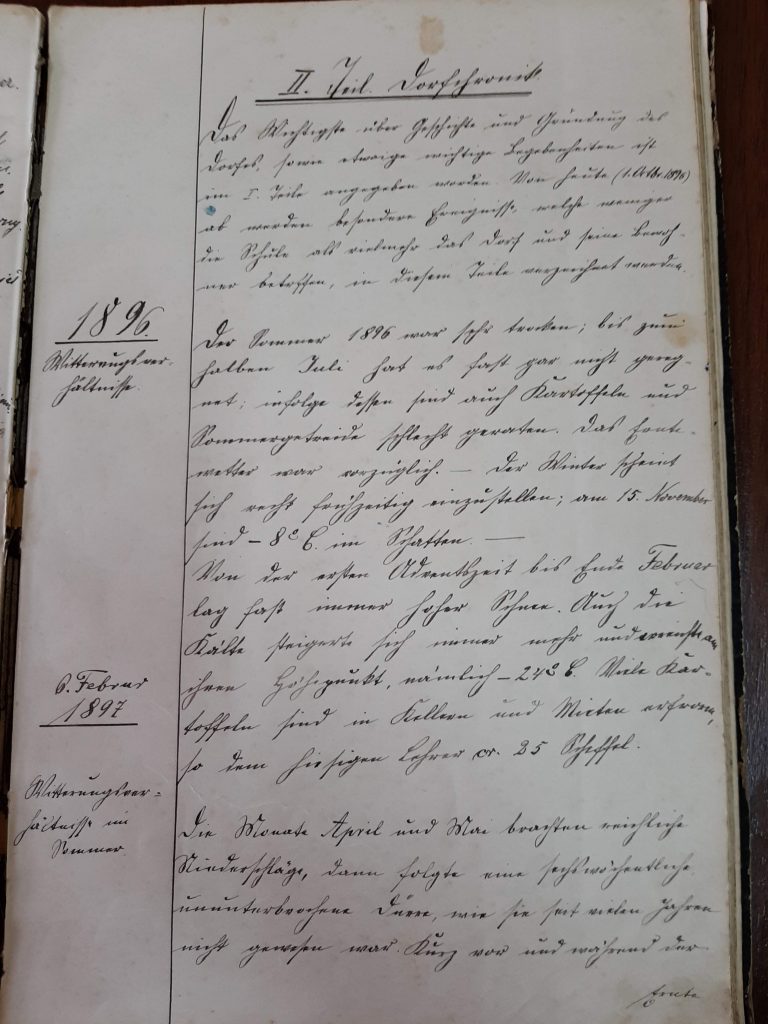 II. Teil. Dorfchronik
Das Wichtigste über Geschichte und Gründung des
Dorfes, sowie etwaige wichtige Begebenheiten ist
im I. Teile angegeben worden. Von heute (1. Octbr. 1896)
ab werden besondere Ereignisse, welche weniger
die Schule als vielmehr das Dorf und seine Bewoh-
ner betreffen, in diesem Teile verzeichnet werden.
1896.
Witterungsver-
hältnisse.
Der Sommer 1896 war sehr trocken; bis zum
halben Juli hat es fast gar nicht gereg-
net; infolge dessen sind auch Kartoffeln und
Sommergetreide schlecht geraten. Das Ernte-
wetter war vorzüglich. — Der Winter scheint
sich recht frühzeitig einzustellen; am 15. November
sind – 8° C. im Schatten. —
Von der ersten Adventszeit bis Ende Februar
lag fast immer hoher Schnee. Auch die
Kälte steigerte sich immer mehr und erreichte am
6. Februar
1897
ihren Höhepunkt, nämlich – 24° C. Viele Kar-
toffeln sind in Kellern und Mieten erfroren,
so dem hiesigen Lehrer cr. 25 Scheffel.
Witterungsver-
hältnisse im
Sommer
Die Monate April und Mai brachten reichliche
Niederschläge, dann folgte eine sechswöchentliche
ununterbrochene Dürre, wie sie seit vielen Jahren
nicht gewesen war. Kurz vor und während der
Ernte